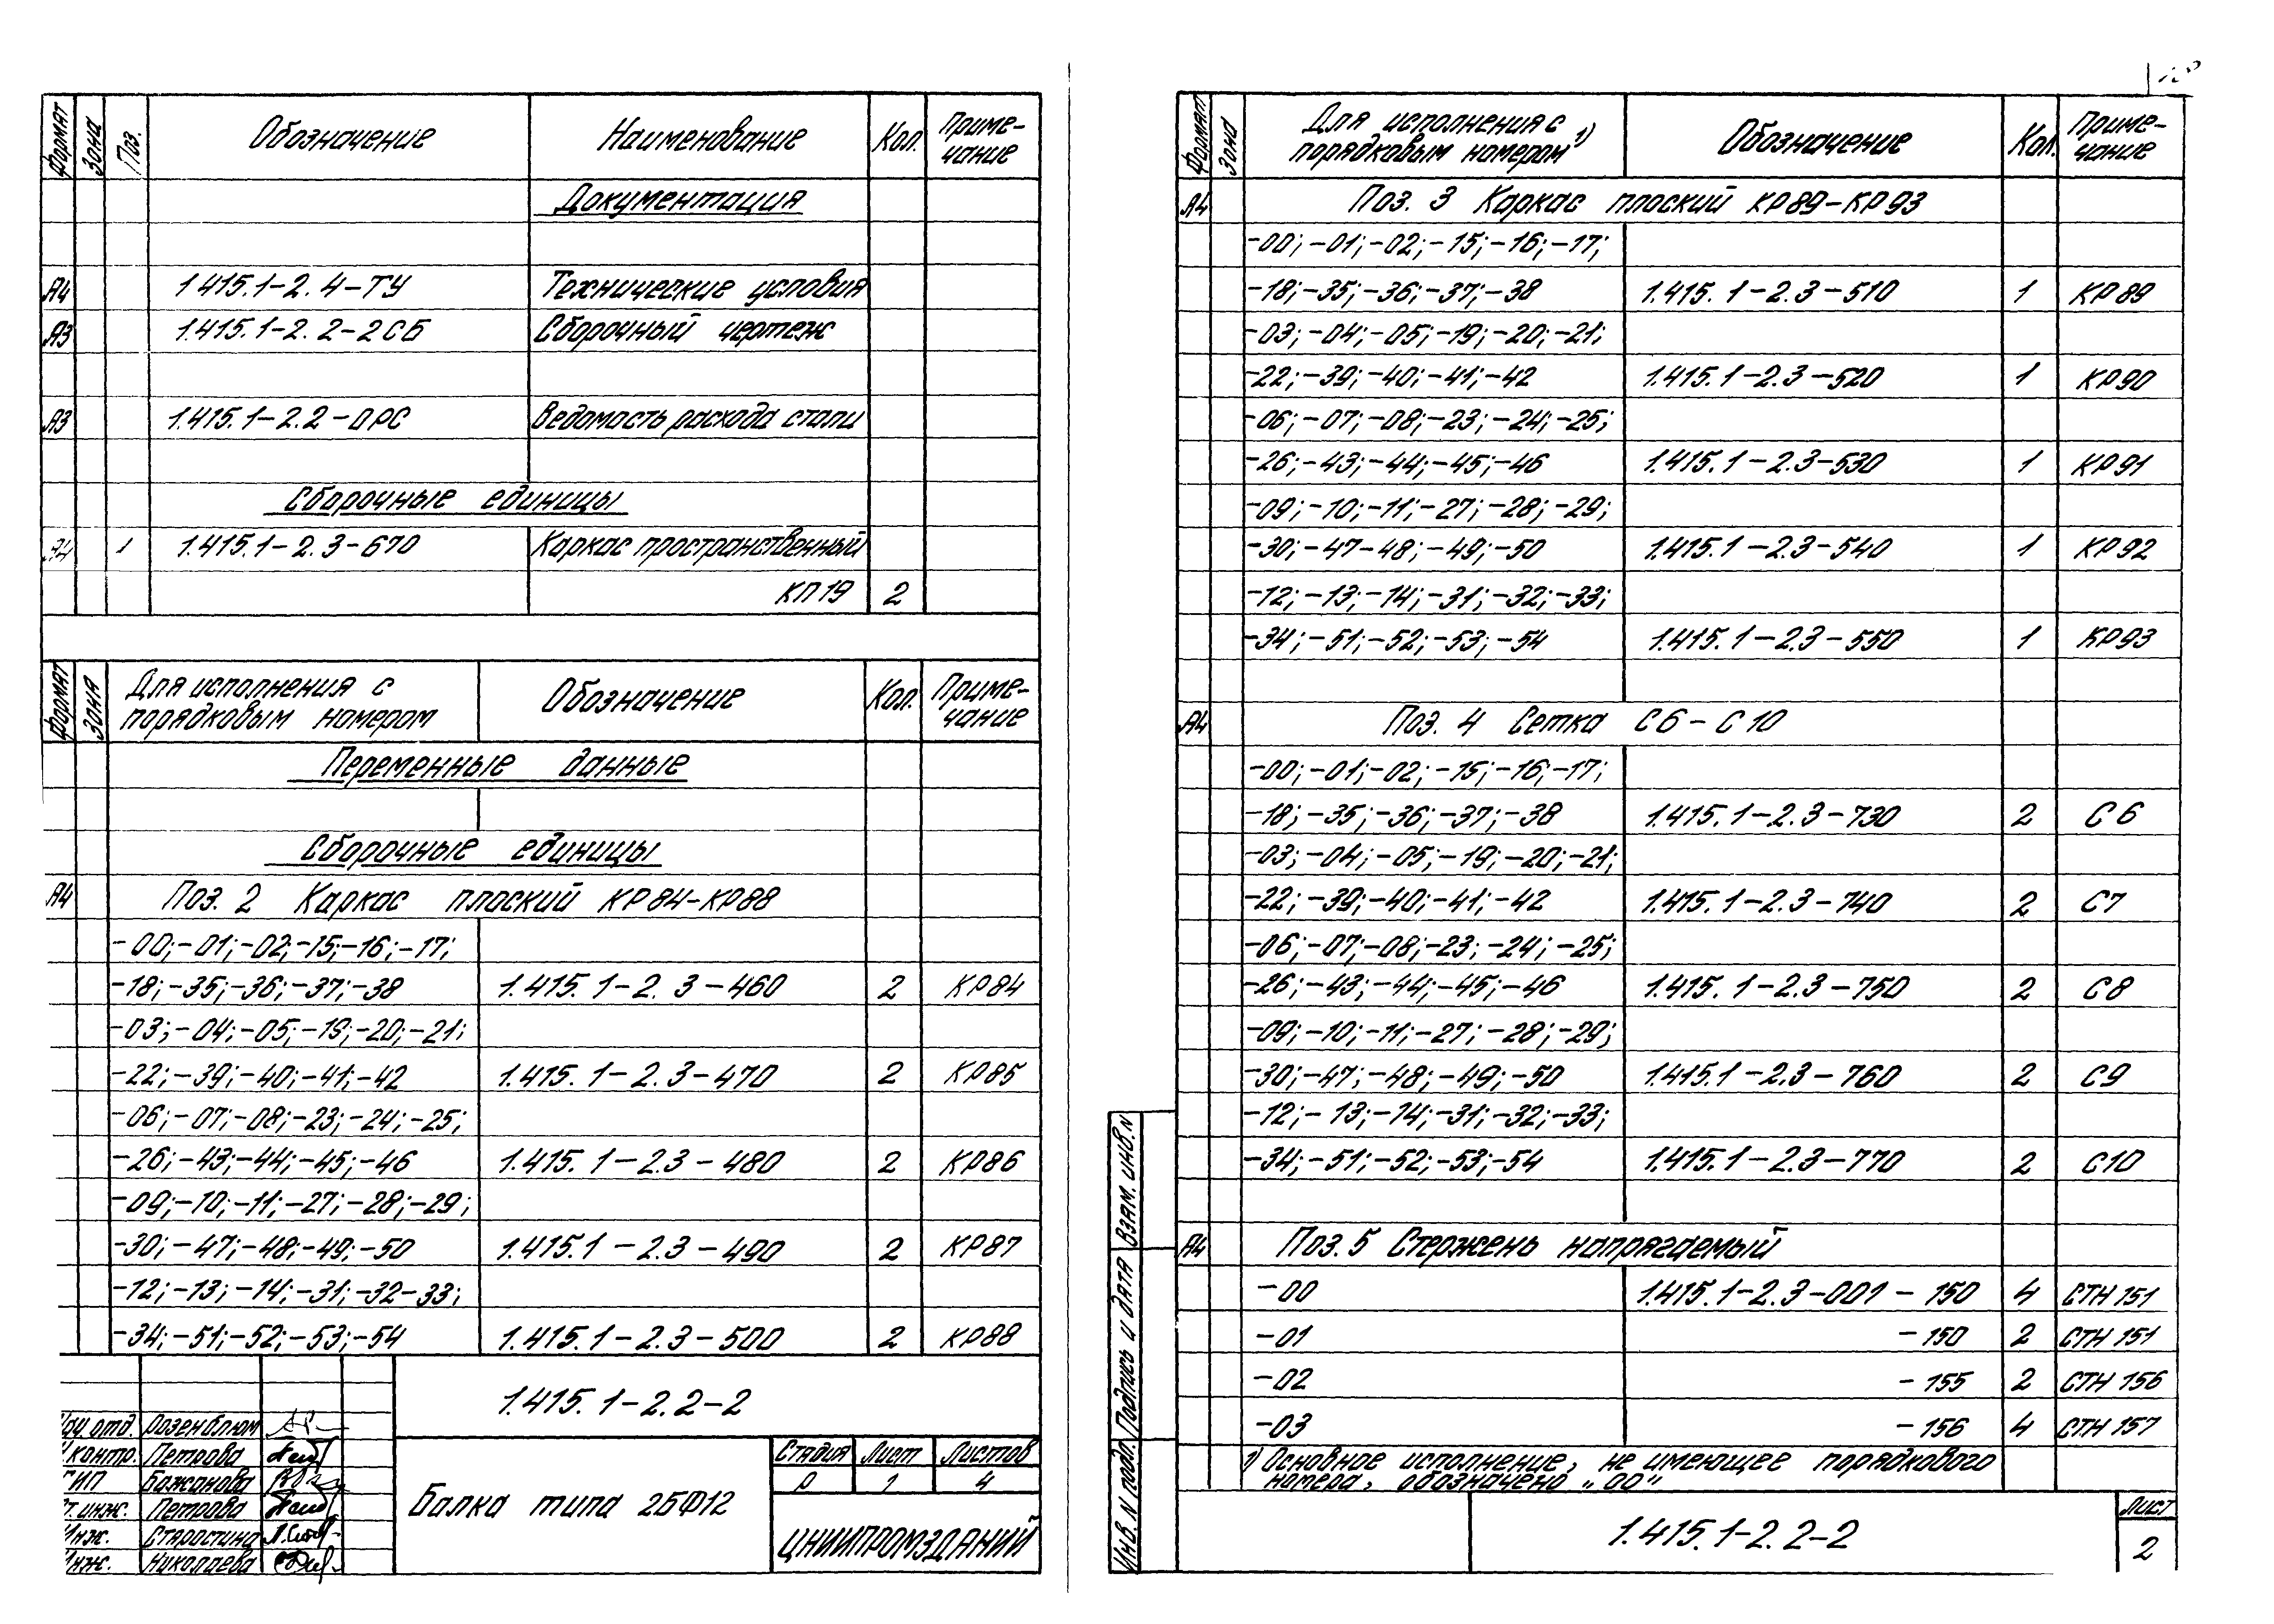 Формат Зона Поз. Обозначение Наименование Кол. Приме-
чание
Документация
А4 1.415.1-2.4-ТУ Технические условия
А3 1.415.1-2.2-2СБ Сборочный чертеж
А3 1.415.1-2.2-0РС Ведомость расхода стали
Сборочные единицы
А4 1 1.415.1-2.3-670 Каркас пространственный
КП19 2
Формат Зона Для исполнения с
порядковым номером Обозначение Кол. Приме-
чание
Переменные данные
Сборочные единицы
А4 Поз. 2 Каркас плоский КР84-КР88
-00;-01;-02;-15;-16;-17;
-18;-35;-36;-37;-38 1.415.1-2.3-460 2 КР84
-03;-04;-05;-19;-20;-21;
-22;-39;-40;-41;-42 1.415.1-2.3-470 2 КР85
-06;-07;-08;-23;-24;-25;
-26;-43;-44;-45;-46 1.415.1-2.3-480 2 КР86
-09;-10;-11;-27;-28;-29;
-30;-47;-48;-49;-50 1.415.1-2.3-490 2 КР87
-12;-13;-14;-31;-32-33;
-34;-51;-52;-53;-54 1.415.1-2.3-500 2 КР88
1.415.1-2.2-2
Нач. отд. Розенблюм
Н. контр. Петрова
ГИП Бажанова
Ст. инж. Петрова
Инж. Старостина
Инж. Николаева
Балка типа 2БФ12
Стадия Лист Листов
Р 1 4
ЦНИИПРОМЗДАНИЙ
Формат Зона Для исполнения с
порядковым номером 1) Обозначение Кол. Приме-
чание
А4 Поз. 3 Каркас плоский КР89-КР93
-00;-01;-02;-15;-16;-17;
-18;-35;-36;-37;-38 1.415.1-2.3-510 1 КР89
-03;-04;-05;-19;-20;-21;
-22;-39;-40;-41;-42 1.415.1-2.3-520 1 КР90
-06;-07;-08;-23;-24;-25;
-26;-43;-44;-45;-46 1.415.1-2.3-530 1 КР91
-09;-10;-11;-27;-28;-29;
-30;-47-48;-49;-50 1.415.1-2.3-540 1 КР92
-12;-13;-14;-31;-32;-33;
-34;-51;-52;-53;-54 1.415.1-2.3-550 1 КР93
А4 Поз. 4 Сетка С6-С10
-00;-01;-02;-15;-16;-17;
-18;-35;-36;-37;-38 1.415.1-2.3-730 2 С6
-03;-04;-05;-19;-20;-21;
-22;-39;-40;-41;-42 1.415.1-2.3-740 2 С7
-06;-07;-08;-23;-24;-25;
-26;-43;-44;-45;-46 1.415.1-2.3-750 2 С8
-09;-10;-11;-27;-28;-29;
-30;-47;-48;-49;-50 1.415.1-2.3-760 2 С9
-12;-13;-14;-31;-32;-33;
-34;-51;-52;-53;-54 1.415.1-2.3-770 2 С10
А4 Поз. 5 Стержень напрягаемый
-00 1.415.1-2.3-001-150 4 СТН 151
-01 -150 2 СТН 151
-02 -155 2 СТН 156
-03 -156 4 СТН 157
1) Основное исполнение, не имеющее порядкового
номера, обозначено „00"
Инв. N подл. Подпись и дата Взам. инв. N
1.415.1-2.2-2
Лист
2